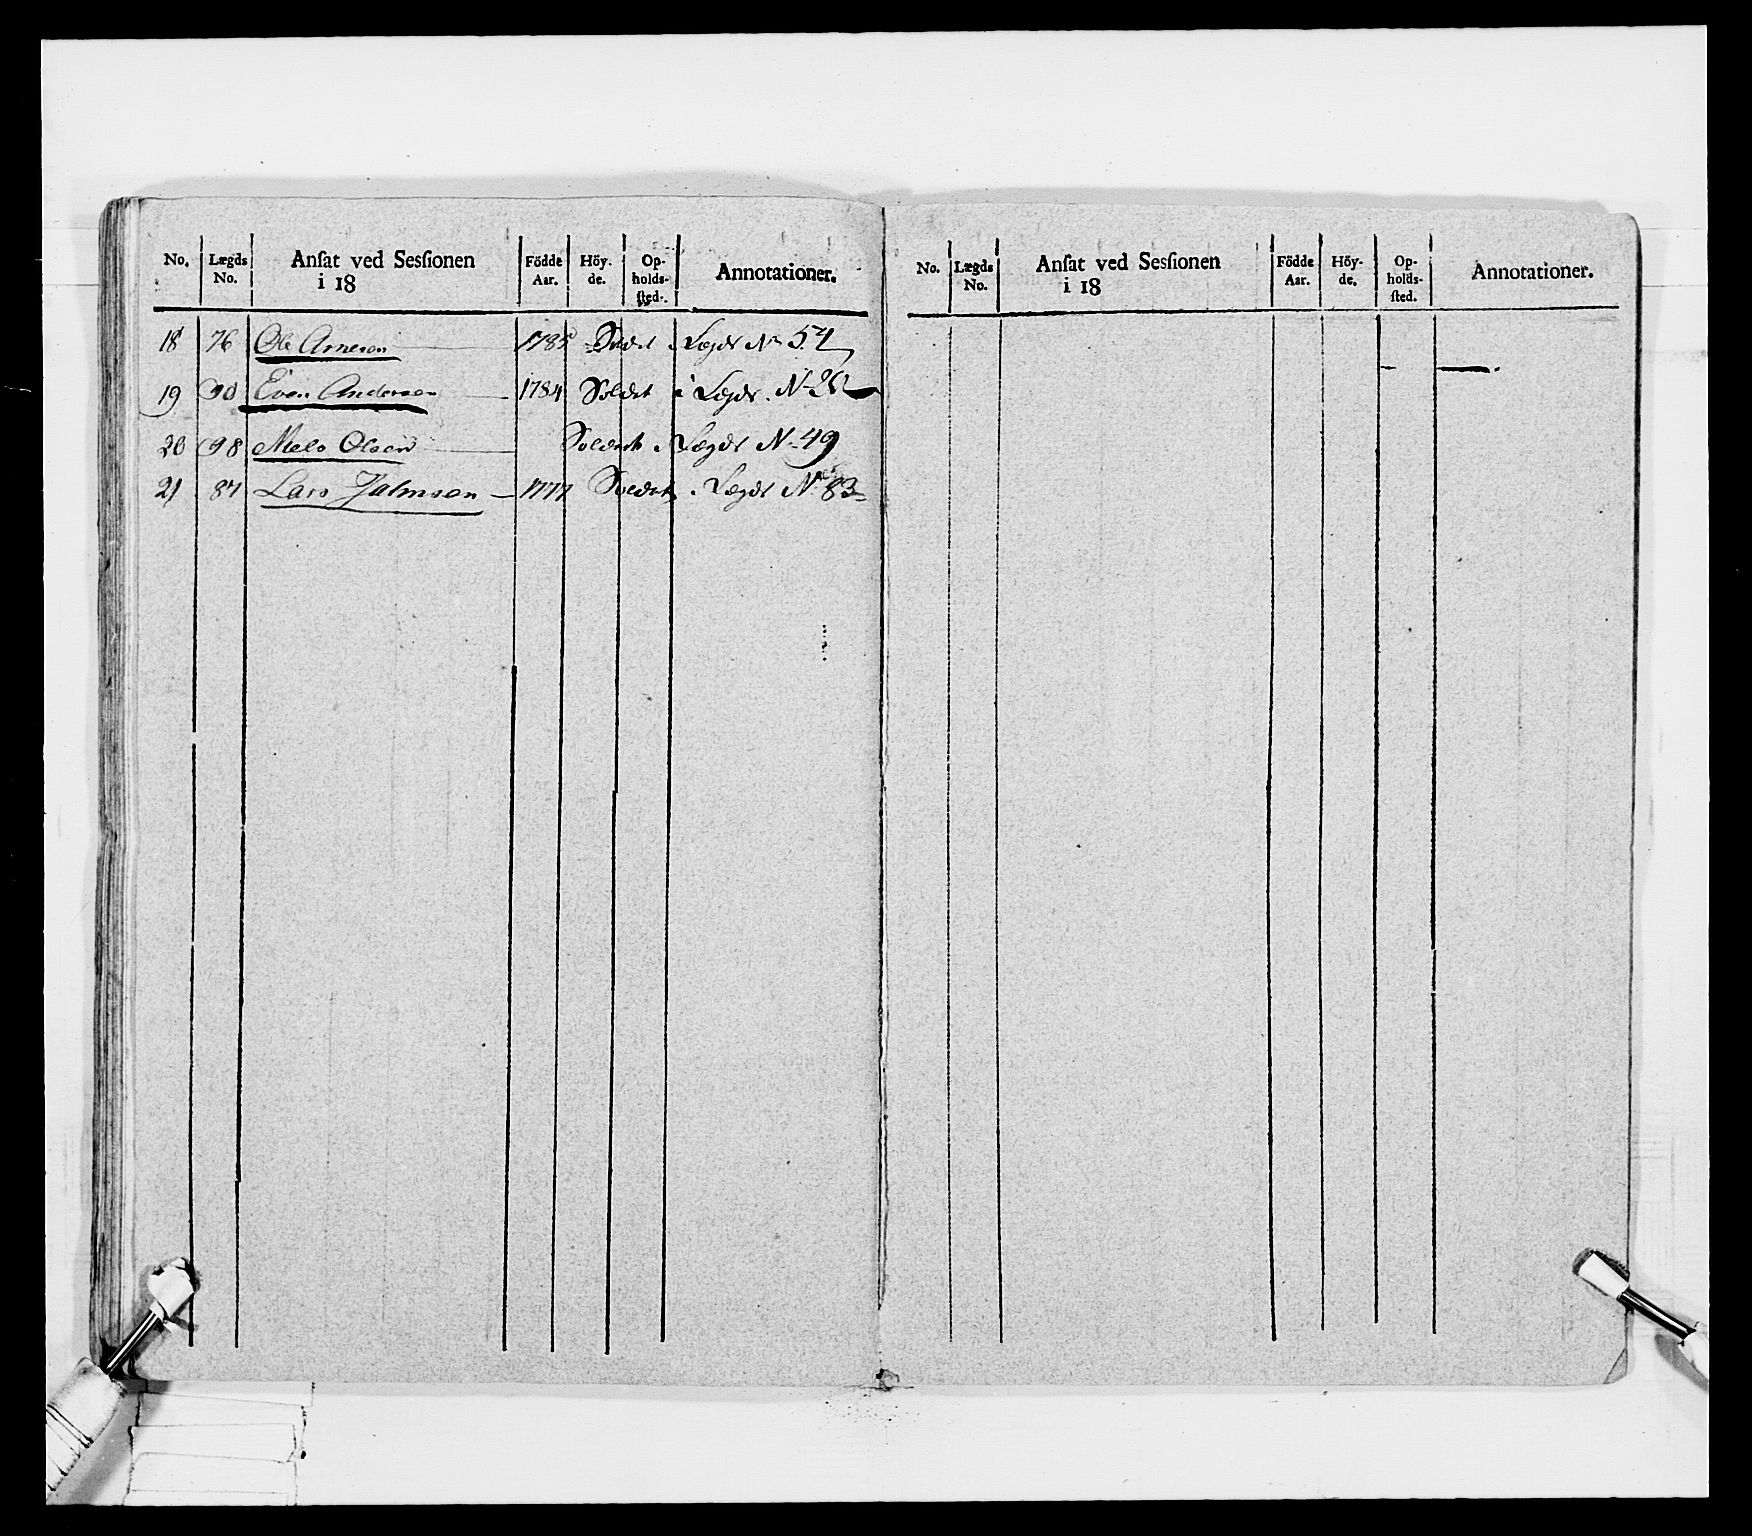 No. Lægds No. Anſat ved Sesſionen i 18 Födde Aar. Höy- de. Op- holds- ſted. Annotationer.
18 76 Ole Arnesen 1785 Soldat i Lægds No 54
19 90 Even Andersen 1784 Soldat i Lægds No
20 98 Niels Olsen Soldat i Lægds No 49
21 87 Lars 1777 Soldat i Lægds No 83
No. Lægds No. Anſat ved Sesſionen i 18 Födde Aar. Höy- de. Op- holds- ſted. Annotationer.